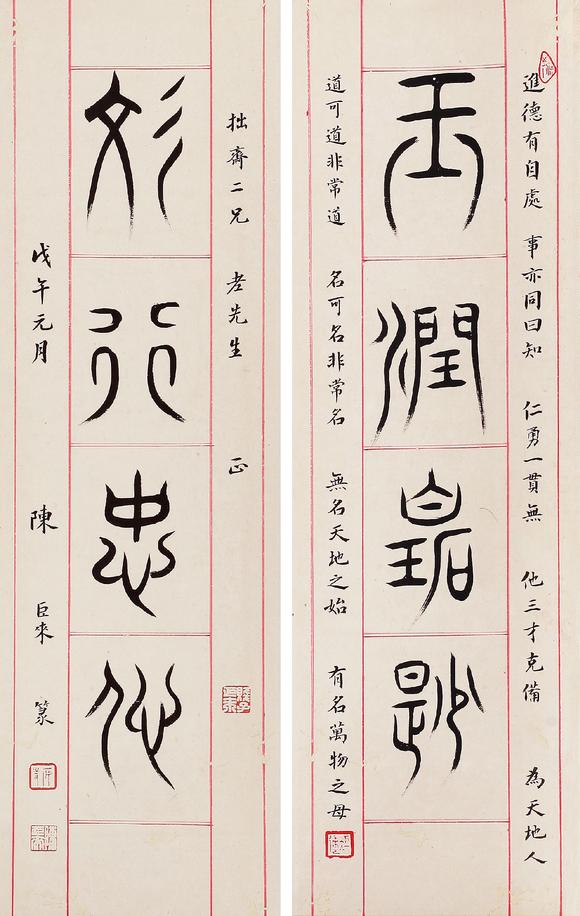 進德有自處 事亦同曰知 仁勇一貫無 他三才克備 為天地人
玉潤碧尟
道可道非常道 名可名非常名 無名天地之始 有名萬物之母
拙齋二兄 老先生 正
彣行忠信
戊午元月 陳巨來篆